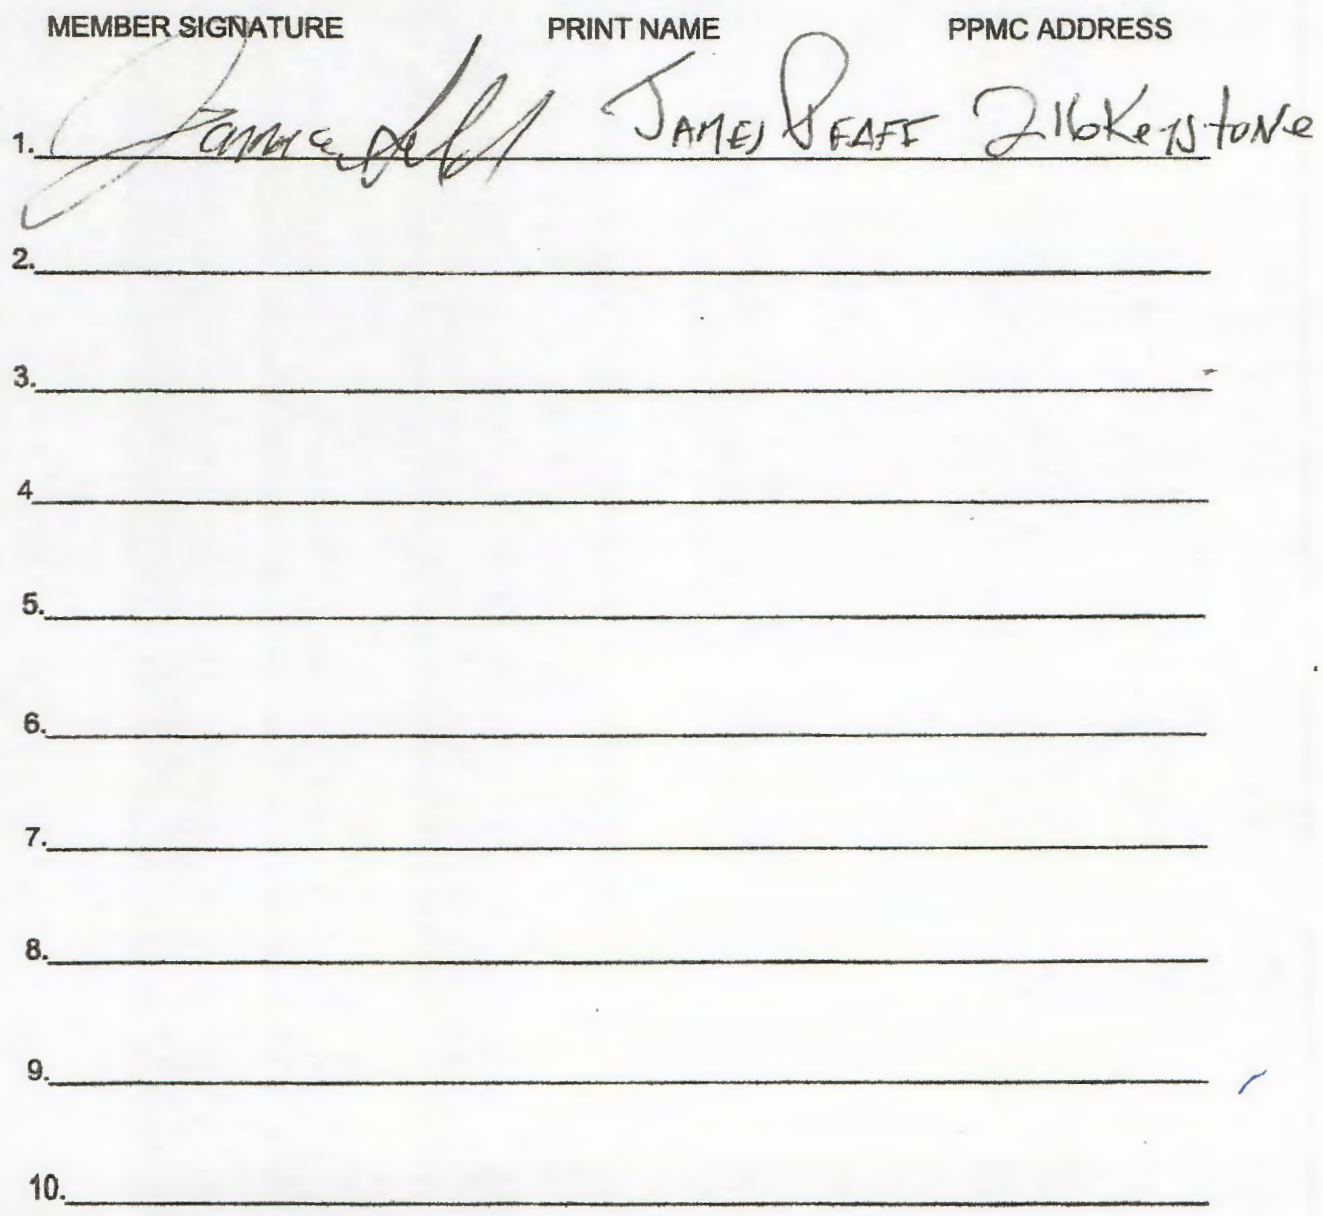 MEMBER SIGNATURE PRINT NAME PPMC ADDRESS
1. JAMES PFAFF 216 Keystone
2.
3.
4
5.
6.
7.
8.
9.
10.